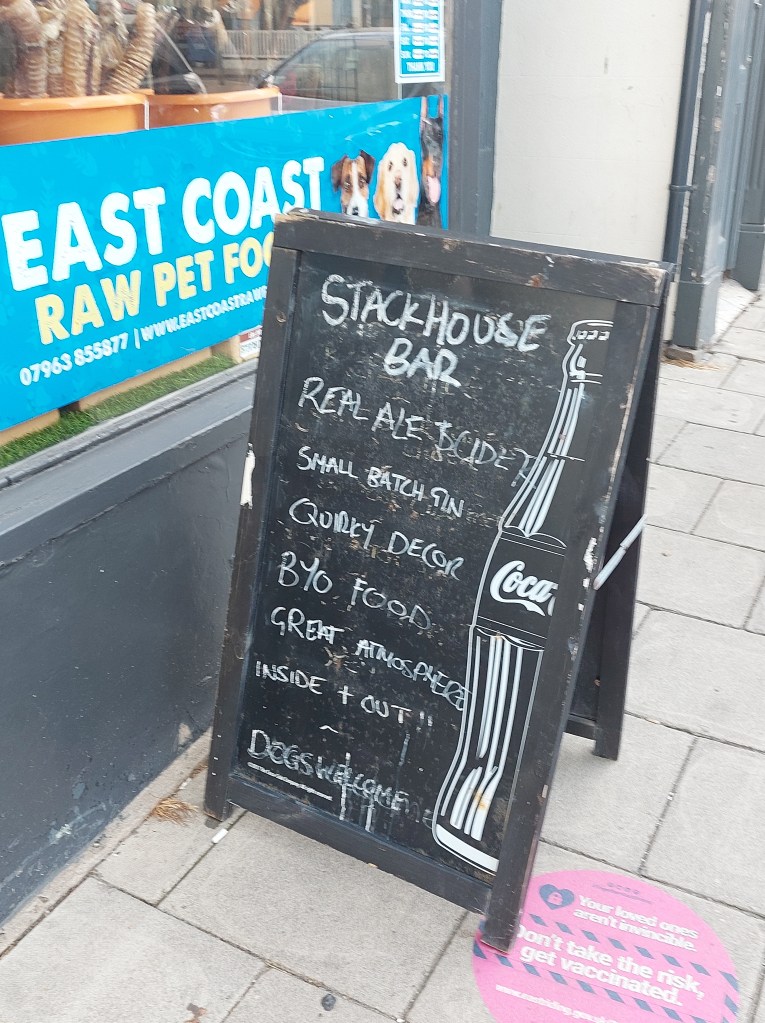 THANK YOU
EAST COAST
RAW PET FOO
07963 855877 | WWW.EASTCOASTRAW
STACKHOUSE
BAR
REAL ALE & CIDER
SMALL BATCH GIN
QUIRKY DECOR
BYO FOOD
GREAT ATMOSPHERE
INSIDE + OUT"
~
DOGS WELCOME
Coca
Your loved ones
aren't invincible.
Don't take the risk,
get vaccinated.